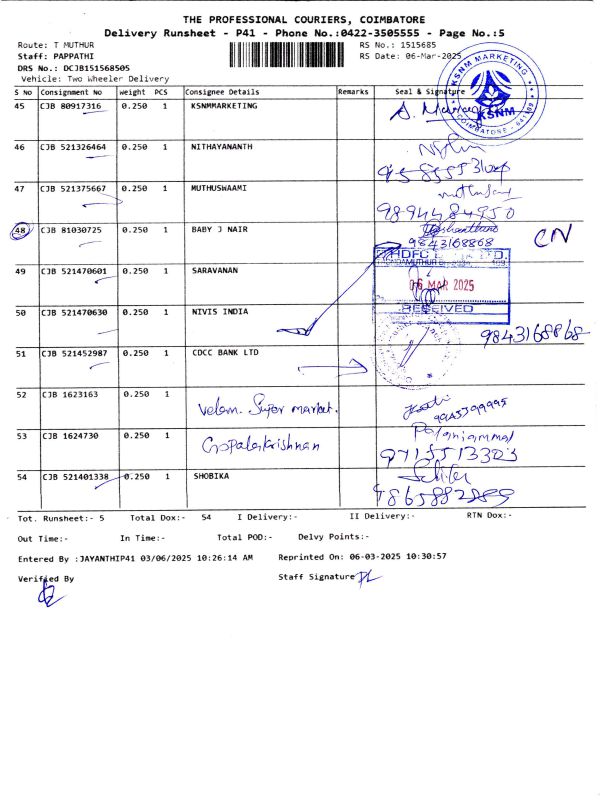 THE PROFESSIONAL COURIERS, COIMBATORE
Delivery Runsheet - P41 - Phone No.:0422-3505555 - Page No.:5
Route: T MUTHUR RS No.: 1515685
Staff: PAPPATHI RS Date: 06-Mar-2025
DRS No.: DCJB151568505
Vehicle: Two Wheeler Delivery
S No Consignment No Weight PCS Consignee Details Remarks Seal & Signature
45 CJB 80917316 0.250 1 KSNMMARKETING
KSNM MARKETING
KSNM
COIMBATORE - 641109
46 CJB 521326464 0.250 1 NITHAYANANTH
47 CJB 521375667 0.250 1 MUTHUSWAAMI
9894484950
48 CJB 81030725 0.250 1 BABY J NAIR
9843168868 CN
49 CJB 521470601 0.250 1 SARAVANAN
HDFC LTD.
06 MAR 2025
RECEIVED
50 CJB 521470630 0.250 1 NIVIS INDIA
9843168868
51 CJB 521452987 0.250 1 CDCC BANK LTD
52 CJB 1623163 0.250 1 Velam Super market.
53 CJB 1624730 0.250 1 Gopalakrishnan
Palaniammal
9715513303
54 CJB 521401338 0.250 1 SHOBIKA
9865882889
Tot. Runsheet:- 5 Total Dox:- 54 I Delivery:- II Delivery:- RTN Dox:-
Out Time:- In Time:- Total POD:- Delvy Points:-
Entered By :JAYANTHIP41 03/06/2025 10:26:14 AM Reprinted On: 06-03-2025 10:30:57
Verified By Staff Signature